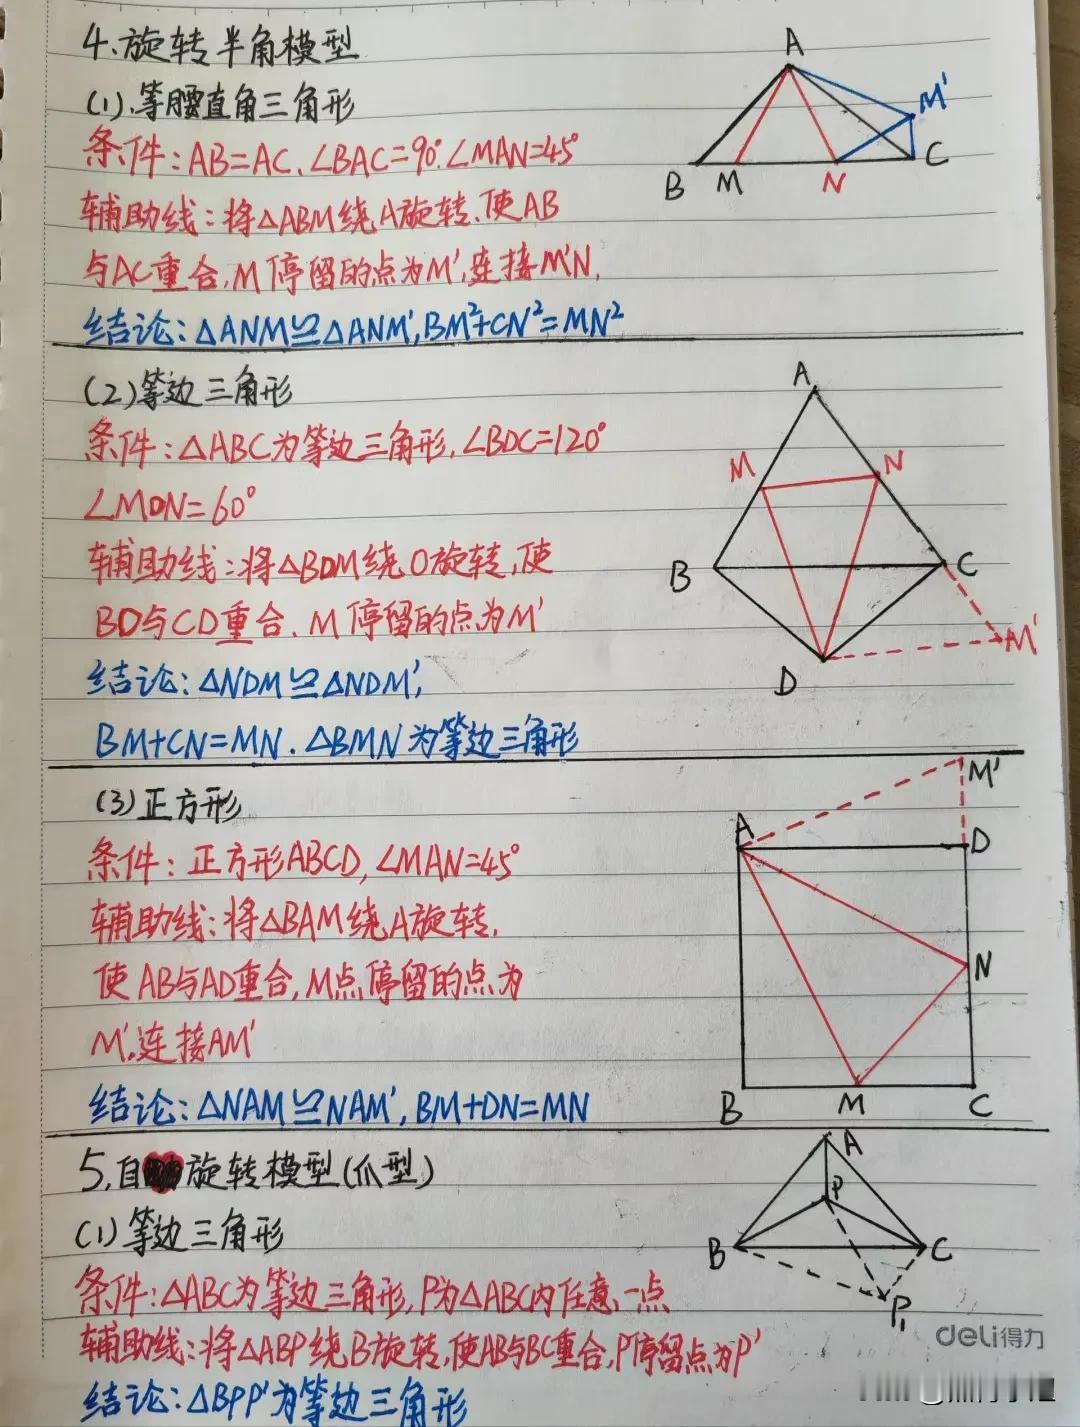 4.旋转半角模型
(1).等腰直角三角形
条件:AB=AC.∠BAC=90°.∠MAN=45°
辅助线:将△ABM绕A旋转.使AB
与AC重合.M停留的点为M',连接M'N.
结论:△ANM≌△ANM',BM²+CN²=MN²
A
M'
B
M
N
C
(2)等边三角形
条件:△ABC为等边三角形,∠BDC=120°
∠MDN=60°
辅助线:将△BDM绕D旋转,使
BD与CD重合.M停留的点为M'
结论:△NDM≌△NDM',
BM+CN=MN.△BMN为等边三角形
A
M
N
B
C
M'
D
(3)正方形
条件:正方形ABCD,∠MAN=45°
辅助线:将△BAM绕A旋转.
使AB与AD重合,M点停留的点为
M',连接AM'
结论:△NAM≌NAM',BM+DN=MN
M'
A
D
N
B
M
C
5.自旋转模型(爪型)
(1)等边三角形
条件:△ABC为等边三角形,P为△ABC内任意一点
辅助线:将△ABP绕B旋转,使AB与BC重合,P停留点为P'
结论:△BPP'为等边三角形
A
P
B
C
P₁
deli得力